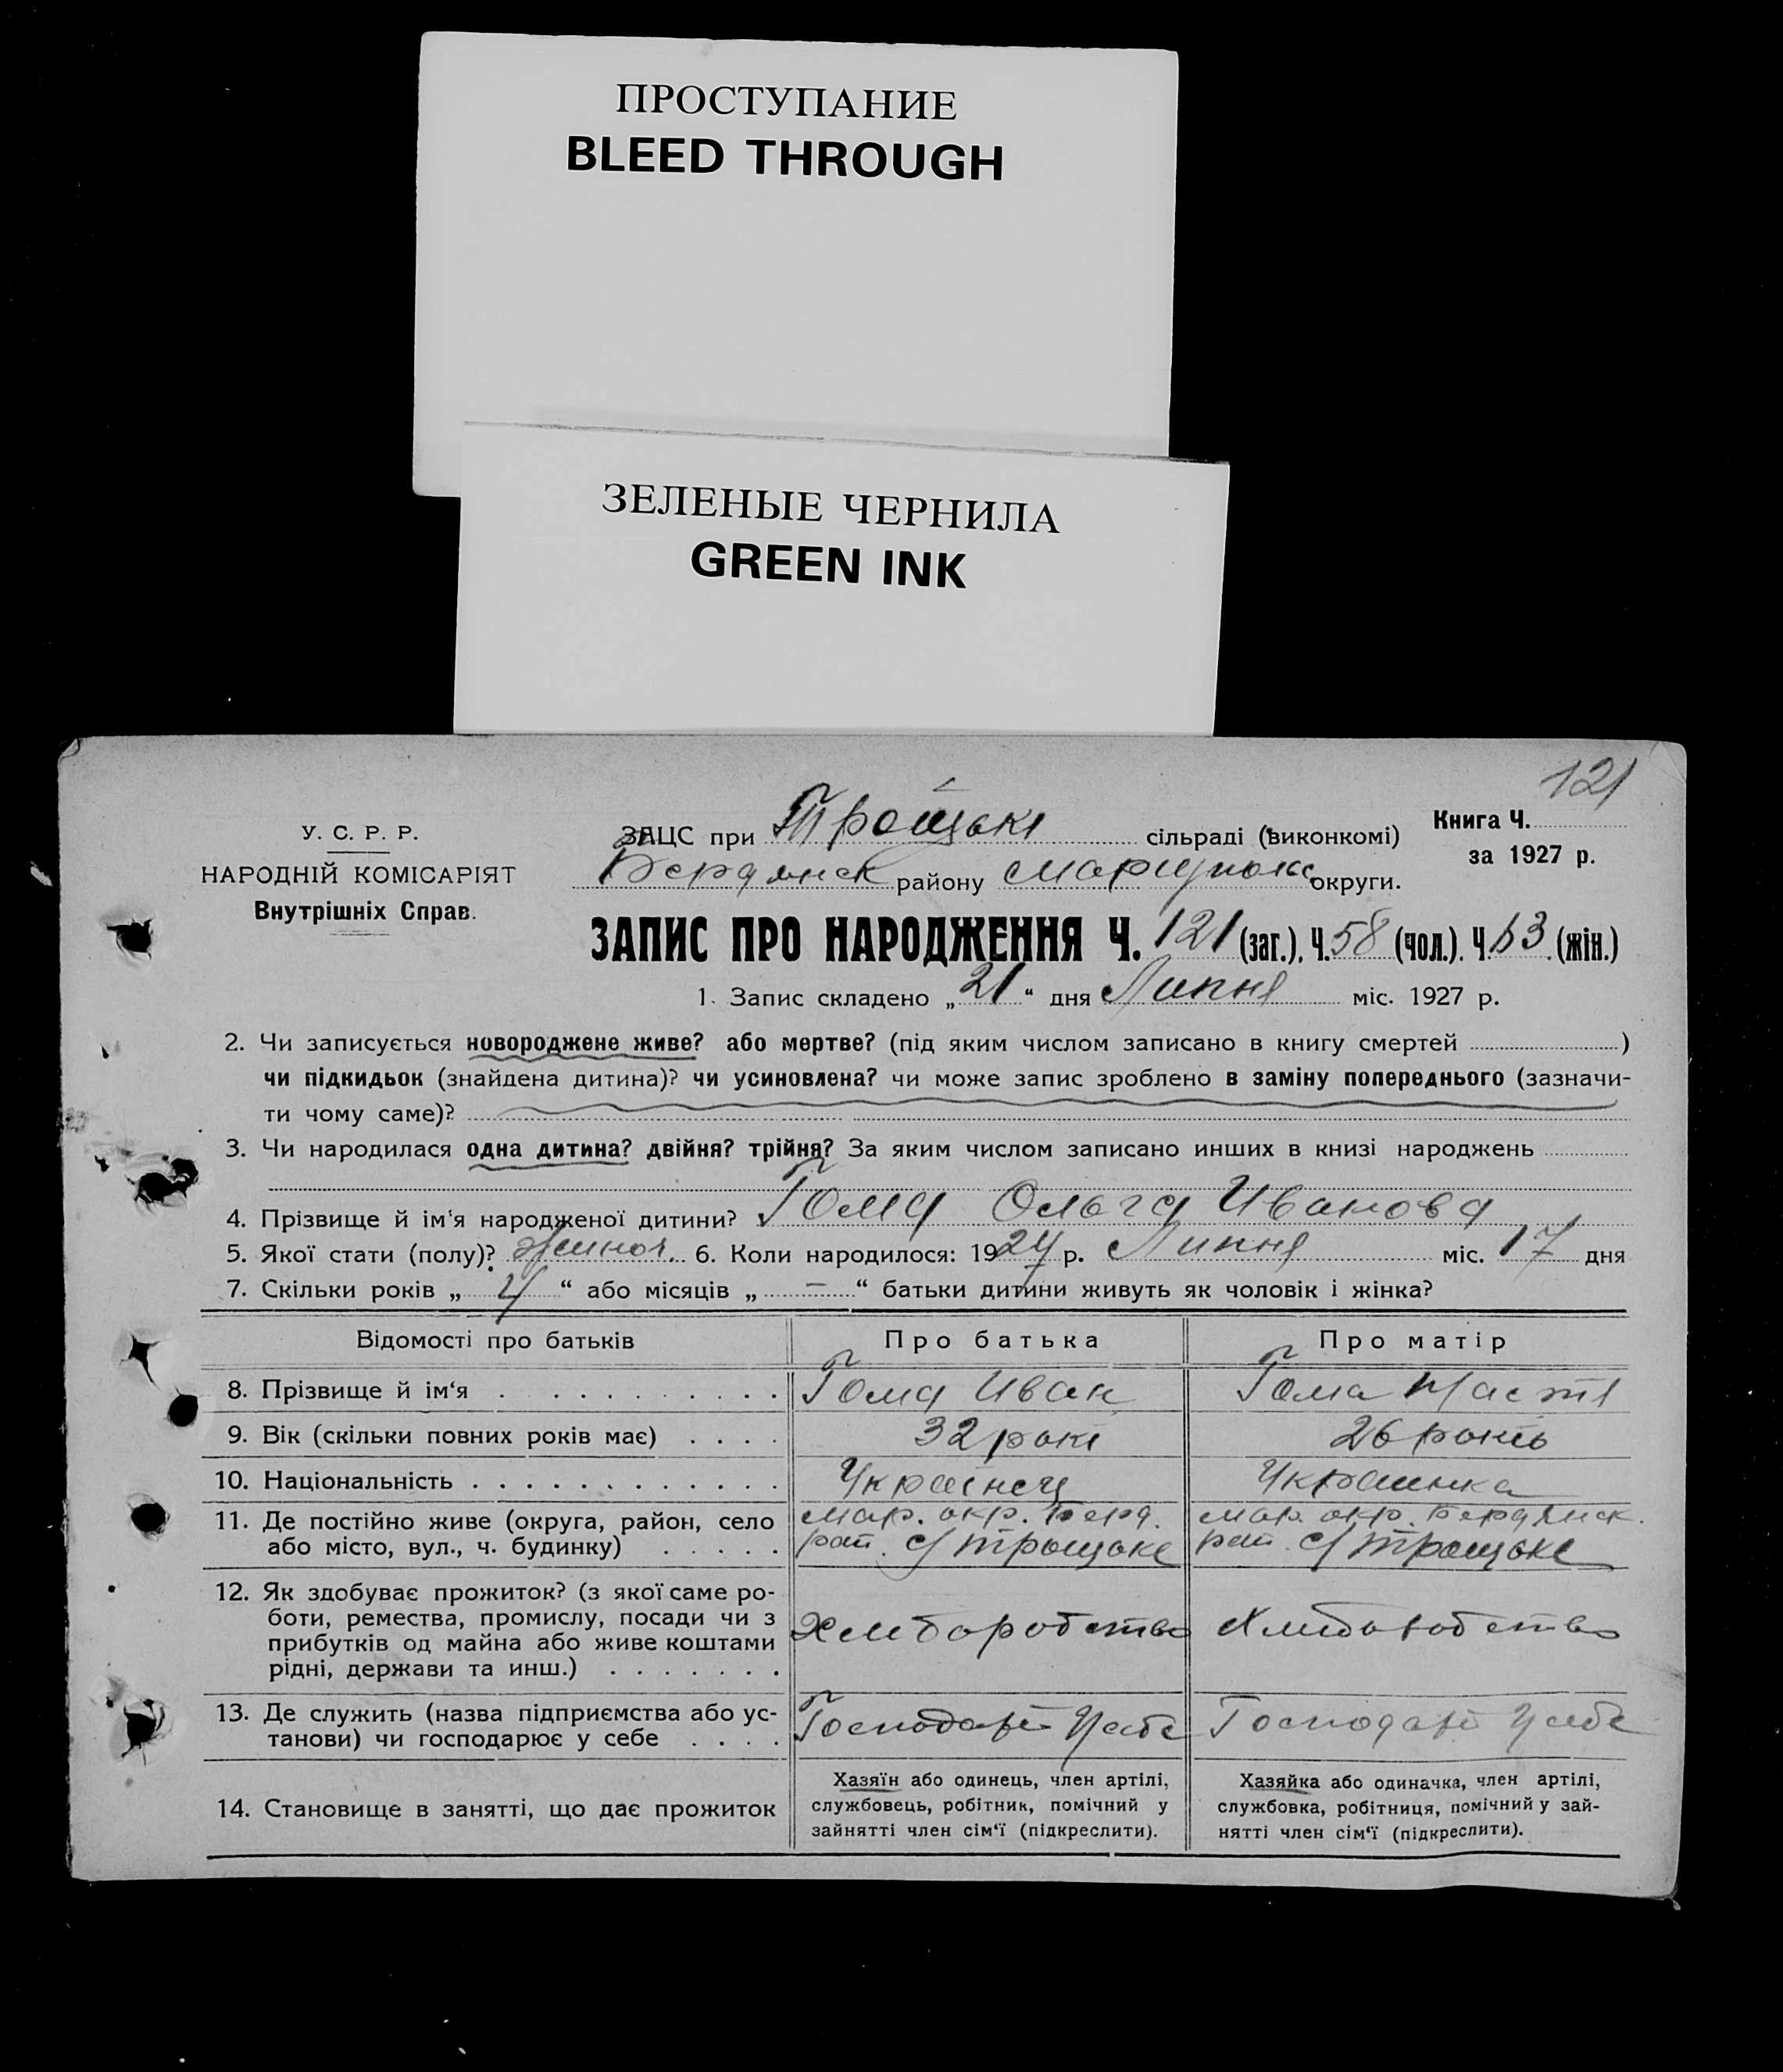 ПРОСТУПАНИЕ
BLEED THROUGH
ЗЕЛЕНЫЕ ЧЕРНИЛА
GREEN INK
121
У. С. Р. Р.
НАРОДНІЙ КОМІСАРІЯТ
Внутрішніх Справ.
ЗАЦС при Троцькі сільраді (виконкомі)
Книга Ч.
за 1927 р.
Бердянск району Мариупольс округи.
ЗАПИС ПРО НАРОДЖЕННЯ Ч. 121 (заг.). Ч. 58 (чол.). Ч. 63 (жін.)
1. Запис складено „21“ дня Липня міс. 1927 р.
2. Чи записується новороджене живе? або мертве? (під яким числом записано в книгу смертей )
чи підкидьок (знайдена дитина)? чи усиновлена? чи може запис зроблено в заміну попереднього (зазначи-
ти чому саме)?
3. Чи народилася одна дитина? двійня? трійня? За яким числом записано инших в книзі народжень
4. Прізвище й ім'я народженої дитини? Гома Ольга Иванова
5. Якої стати (полу)? Жиноч. 6. Коли народилося: 1927 р. Липня міс. 17 дня
7. Скільки років „4“ або місяців „–“ батьки дитини живуть як чоловік і жінка?
Відомості про батьків Про батька Про матір
8. Прізвище й ім'я Гома Иван Гома Насті
9. Вік (скільки повних років має) 32 рокі 26 роки
10. Національність Українец Украинка
11. Де постійно живе (округа, район, село
або місто, вул., ч. будинку)
Мар. окр. Берд.
рай. с/Троцьке
Мар. окр. Бердянск.
рай. с/Троцьке
12. Як здобуває прожиток? (з якої саме ро-
боти, ремества, промислу, посади чи з
прибутків од майна або живе коштами
рідні, держави та инш.)
Хлиборобство Хлиборобство
13. Де служить (назва підприємства або ус-
танови) чи господарює у себе
Господарі Усебе Господарі Усебе
14. Становище в занятті, що дає прожиток
Хазяїн або одинець, член артілі,
службовець, робітник, помічний у
зайнятті член сім'ї (підкреслити).
Хазяйка або одиначка, член артілі,
службовка, робітниця, помічний у зай-
нятті член сім'ї (підкреслити).